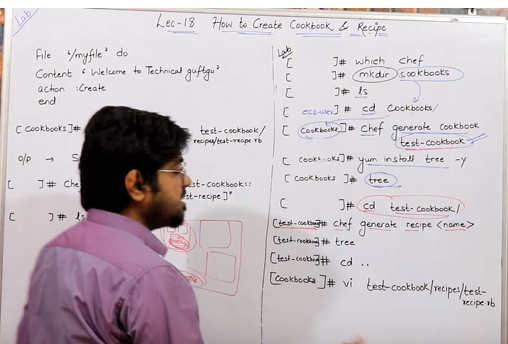 Lab
Lec-18 How to Create Cookbook & Recipe
File '/myfile' do
Content 'Welcome to Technical guftgu'
action :create
end
[cookbooks]# test-cookbook/
recipes/test-recipe.rb
O/P →
[ ]# che test-cookbook::
test-recipe"
[ ]# ls
Lab
[ ]# which chef
[ ]# mkdir cookbooks
[ ]# ls
[ec2-user]# cd Cookbooks/
[Cookbooks]# chef generate cookbook
test-cookbook
[cookbooks]# yum install tree -y
[cookbooks]# tree
[ ]# cd test-cookbook/
[test-cookbook]# chef generate recipe <name>
[test-cookbook]# tree
[test-cookbook]# cd ..
[Cookbooks]# vi test-cookbook/recipes/test-
recipe.rb